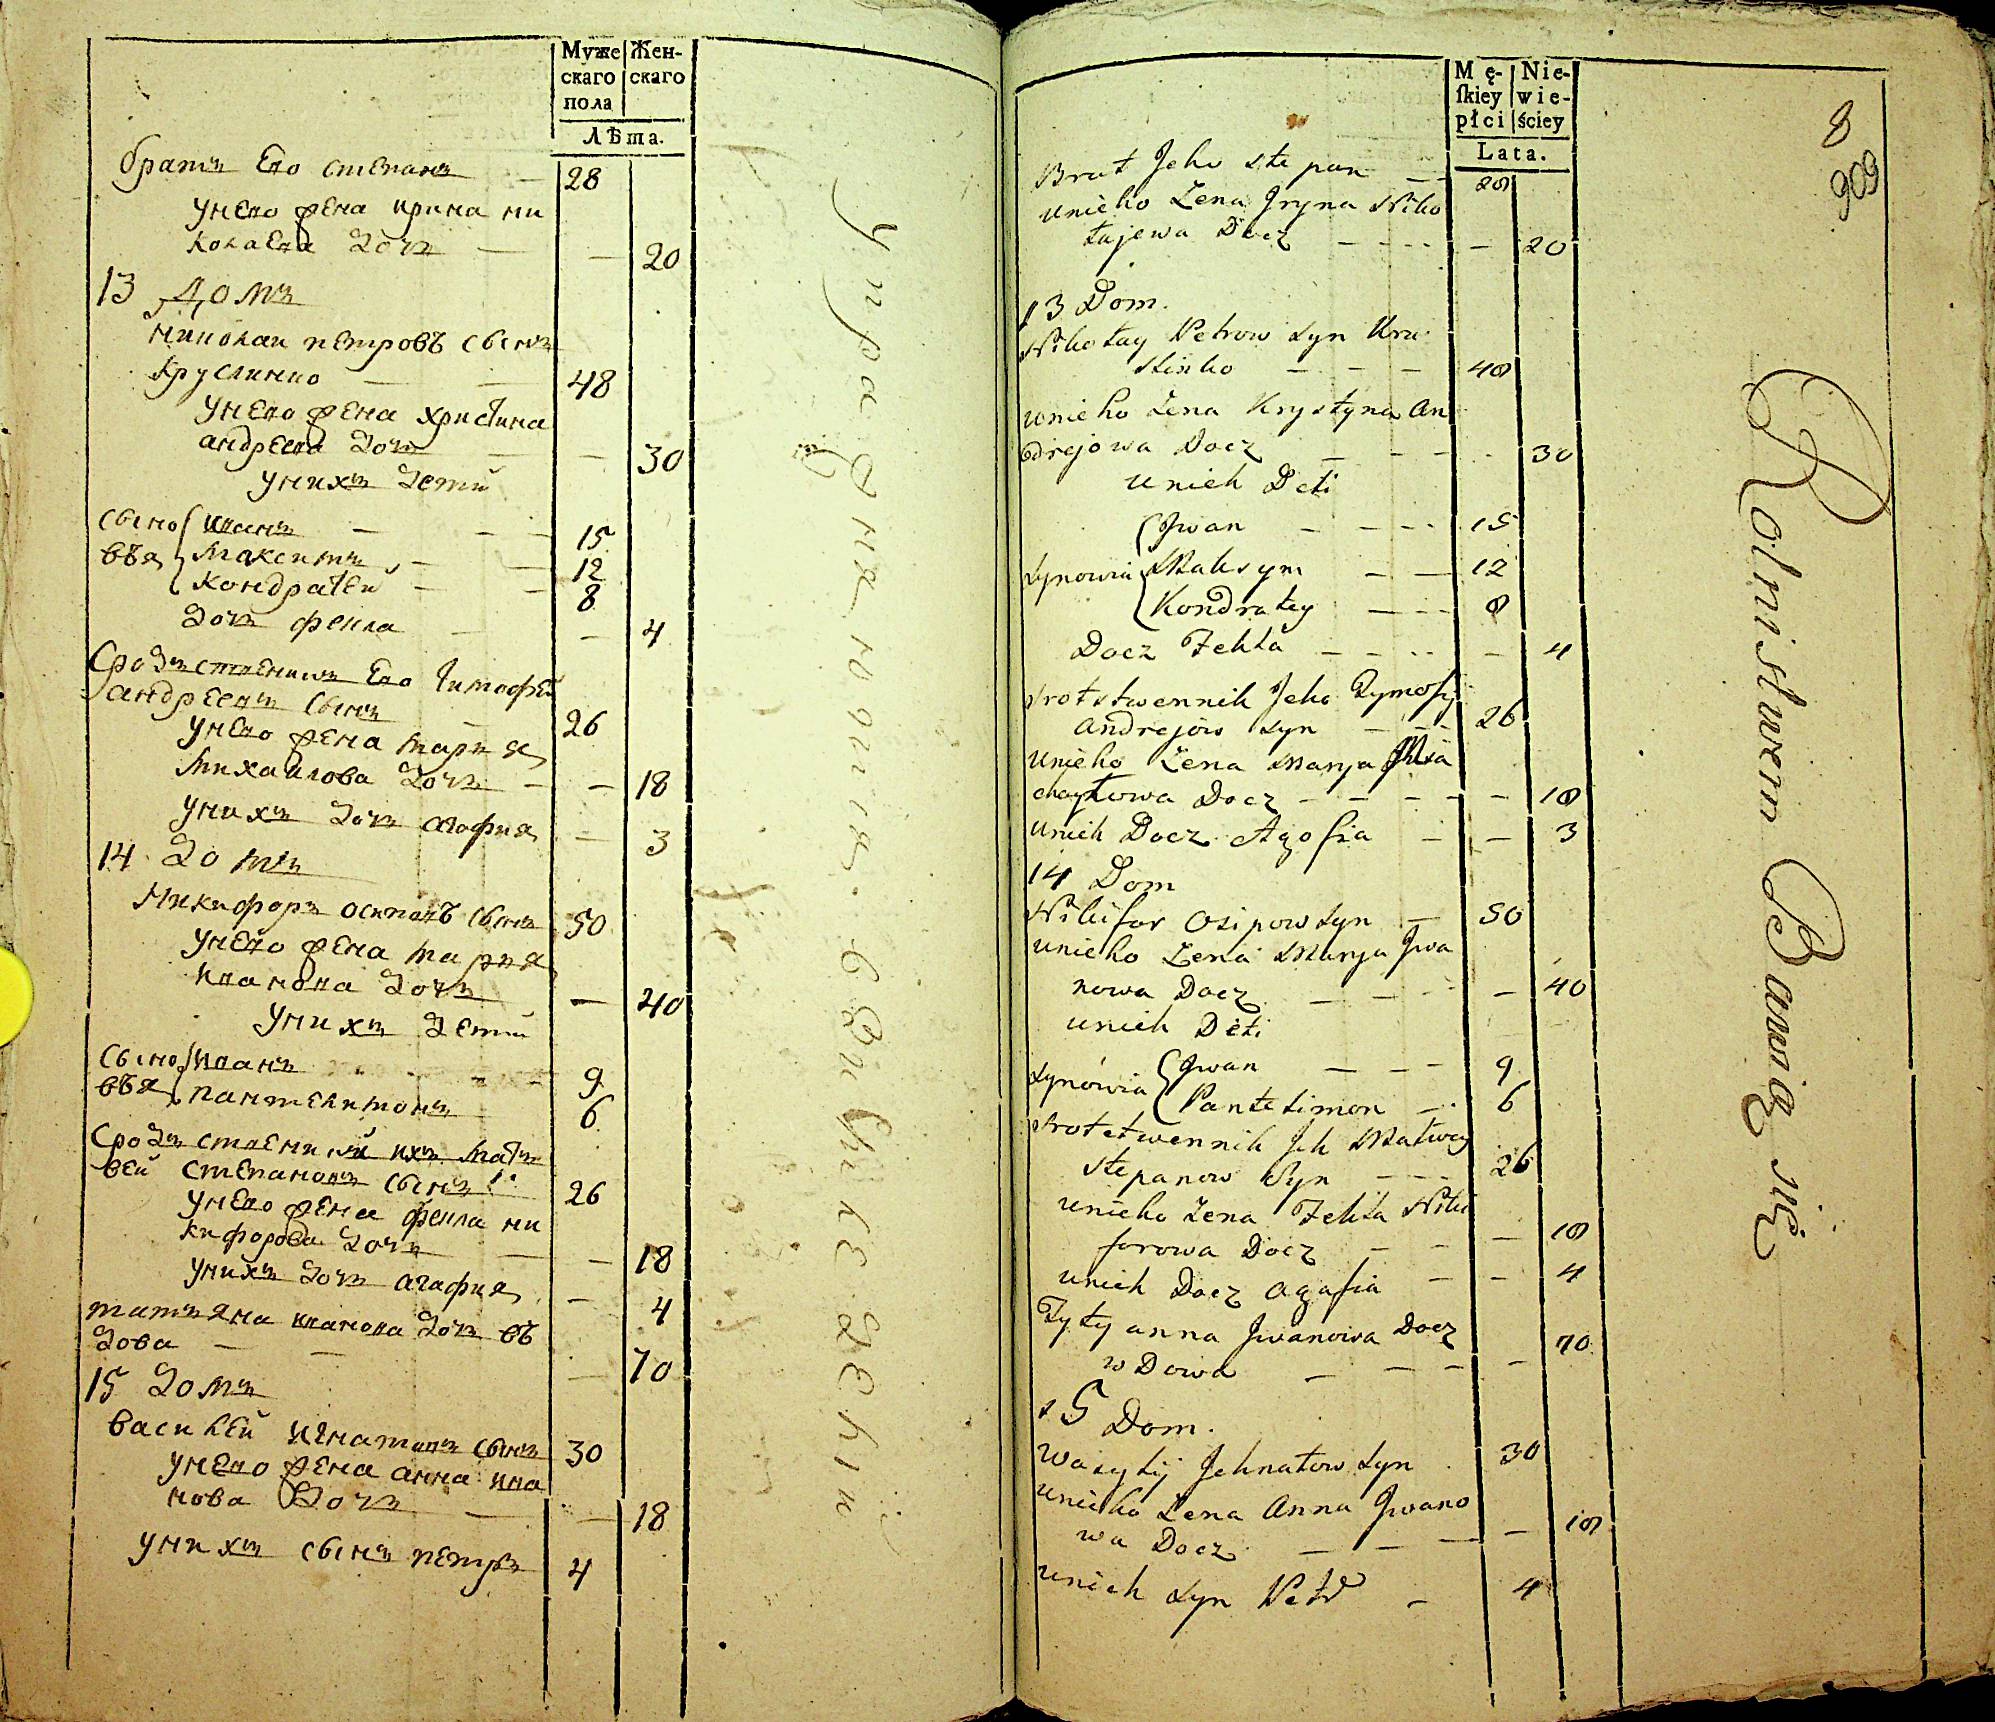 Муже Жен-
скаго скаго
пола
Лѣта.
братъ Его степанъ — 28
унего жена ирина ни
колаева дочь — — 20
13 домъ
николаи петровъ сынъ
круслинко — — 48
унего жена христина
андреева дочь — — 30
унихъ дети
сыно иванъ — — 15
въя максимъ — — 12
кондратеи — — 8
дочь фекла — — 4
Сродственикъ Его тимофеи
андреевъ сынъ — 26
унего жена мария
михаилова дочь — — 18
унихъ дочь агофия — 3
14 домъ
микифоръ осиповъ сынъ 50
унего жена мария
иванова дочь — 40
унихъ дети
сыно иванъ 9
въя пантелимонъ 6
Сродственикъ ихъ мат
вей степановъ сынъ 26
унего жена фекла ни
кифорова дочь — — 18
унихъ дочь агафия — 4
татьяна иванова дочь въ
дова — — — 70
15 домъ
василей игнатовъ сынъ 30
унего жена анна ива
нова дочь — — 18
унихъ сынъ петръ 4
упражняющися в Земледелии
Mę- Nie-
ſkiey wie-
płci ściey
Lata.
Brat Jeho Stepan — — 28
unieho Żena Jryna Niko
łajewa Docz — — — — 20
13 Dom.
Nikołay Petrow Syn Kru
slinko — — — 48
unieho Żena Krystyna An
drejowa Docz — — — 30
unich Deti
Jwan — — — 15
Synowia Maksym — — 12
Kondratey — — 8
Docz Fekła — — — — 4
Srotstwennik Jeho Tymofij
Andrejow Syn — — 26
unieho Żena Marya Mia
chayłowa Docz — — — — — 18
unich Docz Agofia — — 3
14 Dom
Nikifor Osipow Syn — 50
unieho Żena Marya Jwa
nowa Docz — — — — 40
unich Deti
Jwan — — — 9
Synowia Pantelimon — 6
Srotstwennik Jch Matwey
Stepanow Syn — — — 26
unieho Żena Fekła Niki
forowa Docz — — — 18
unich Docz Agafia — — 4
Tytyanna Jwanowa Docz
wDowa — — — — 70
15 Dom.
Wasylij Jehnatow Syn 30
unieho Żena Anna Jwano
wa Docz — — — — 18
unich Syn Petr — 4
8
909
Rolnistwem Bawią się